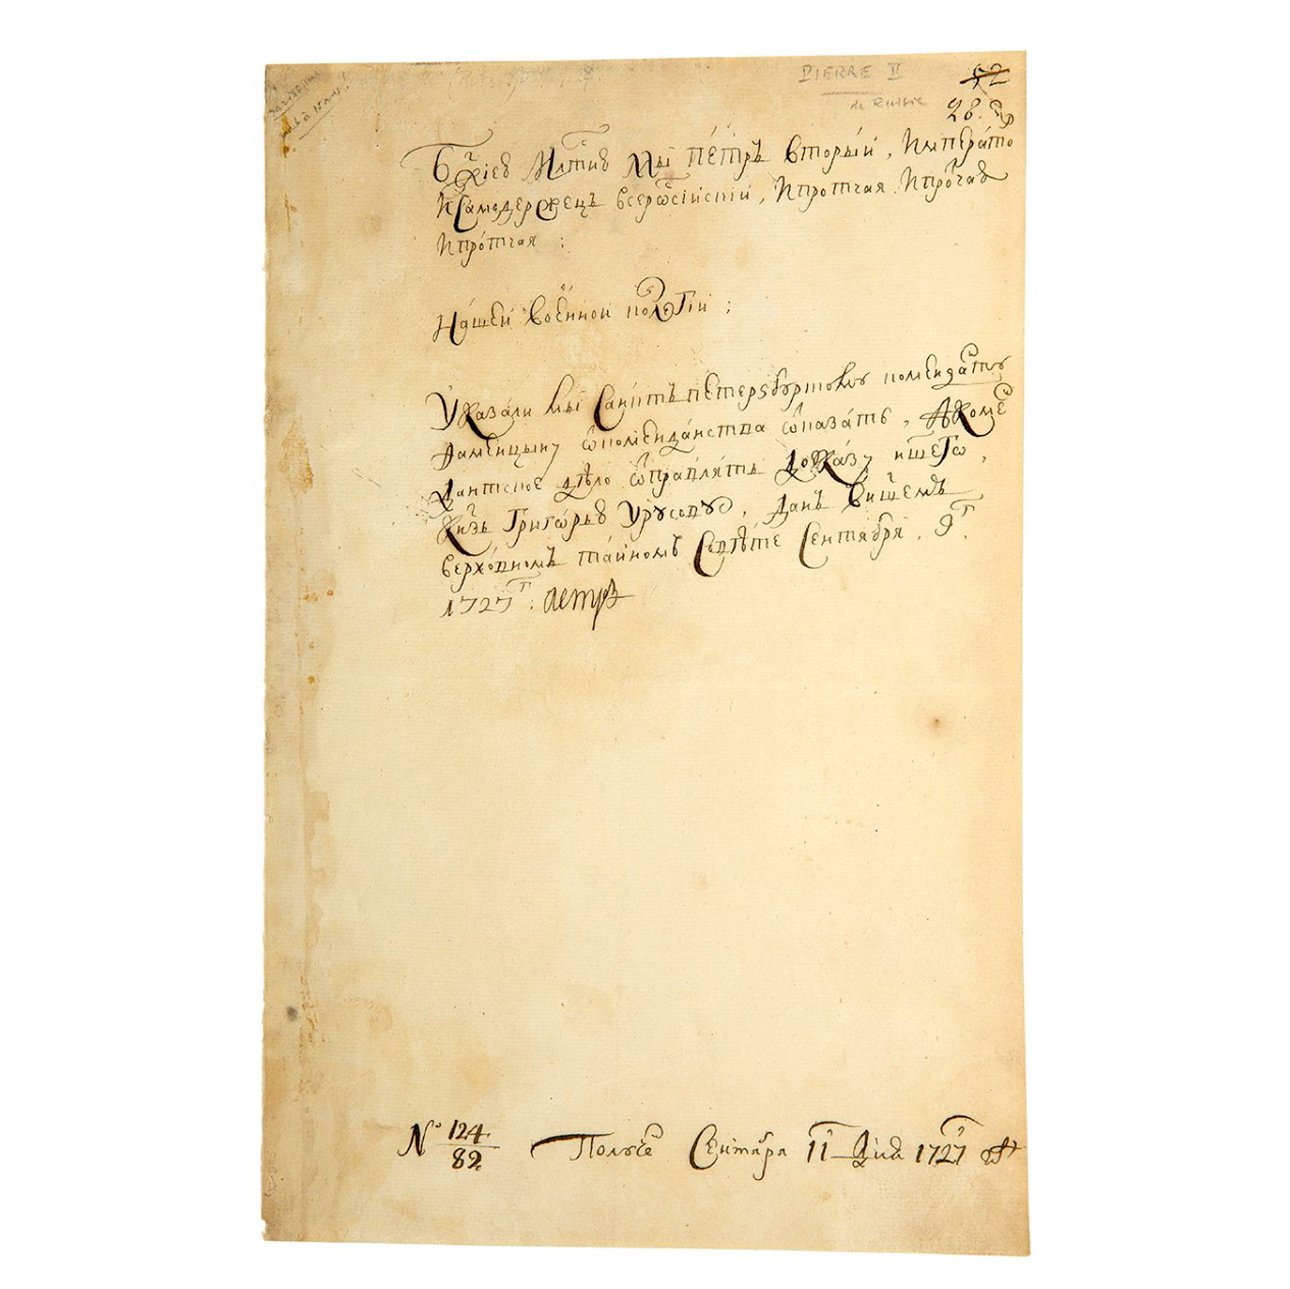 PIERRE II
de Russie
52
28.
Бж҃іею Млтїю Мы Пе́тръ вторы́й, Импера́то
Исамоде́ржецъ всеросїйскїй, Ипротчая Ипро́тчая
Ипро́тчая :
На́шей вое́нной колегїи ;
Указа́ли мы Санктъпѣтерзбургскому коменда́нту
Фаминцыну ѿ коменда́нства ѿказа́ть, а коме
дантское дѣло ѿправля́ть доука́зу нашего,
Кнзь Григо́рью Урусову, данъ внашемъ
верхо́вномъ та́йномъ Совѣ́те Сентября. 9г.
1727г. Петръ
№ 124
82.
Получе Сентября 11 дня 1727